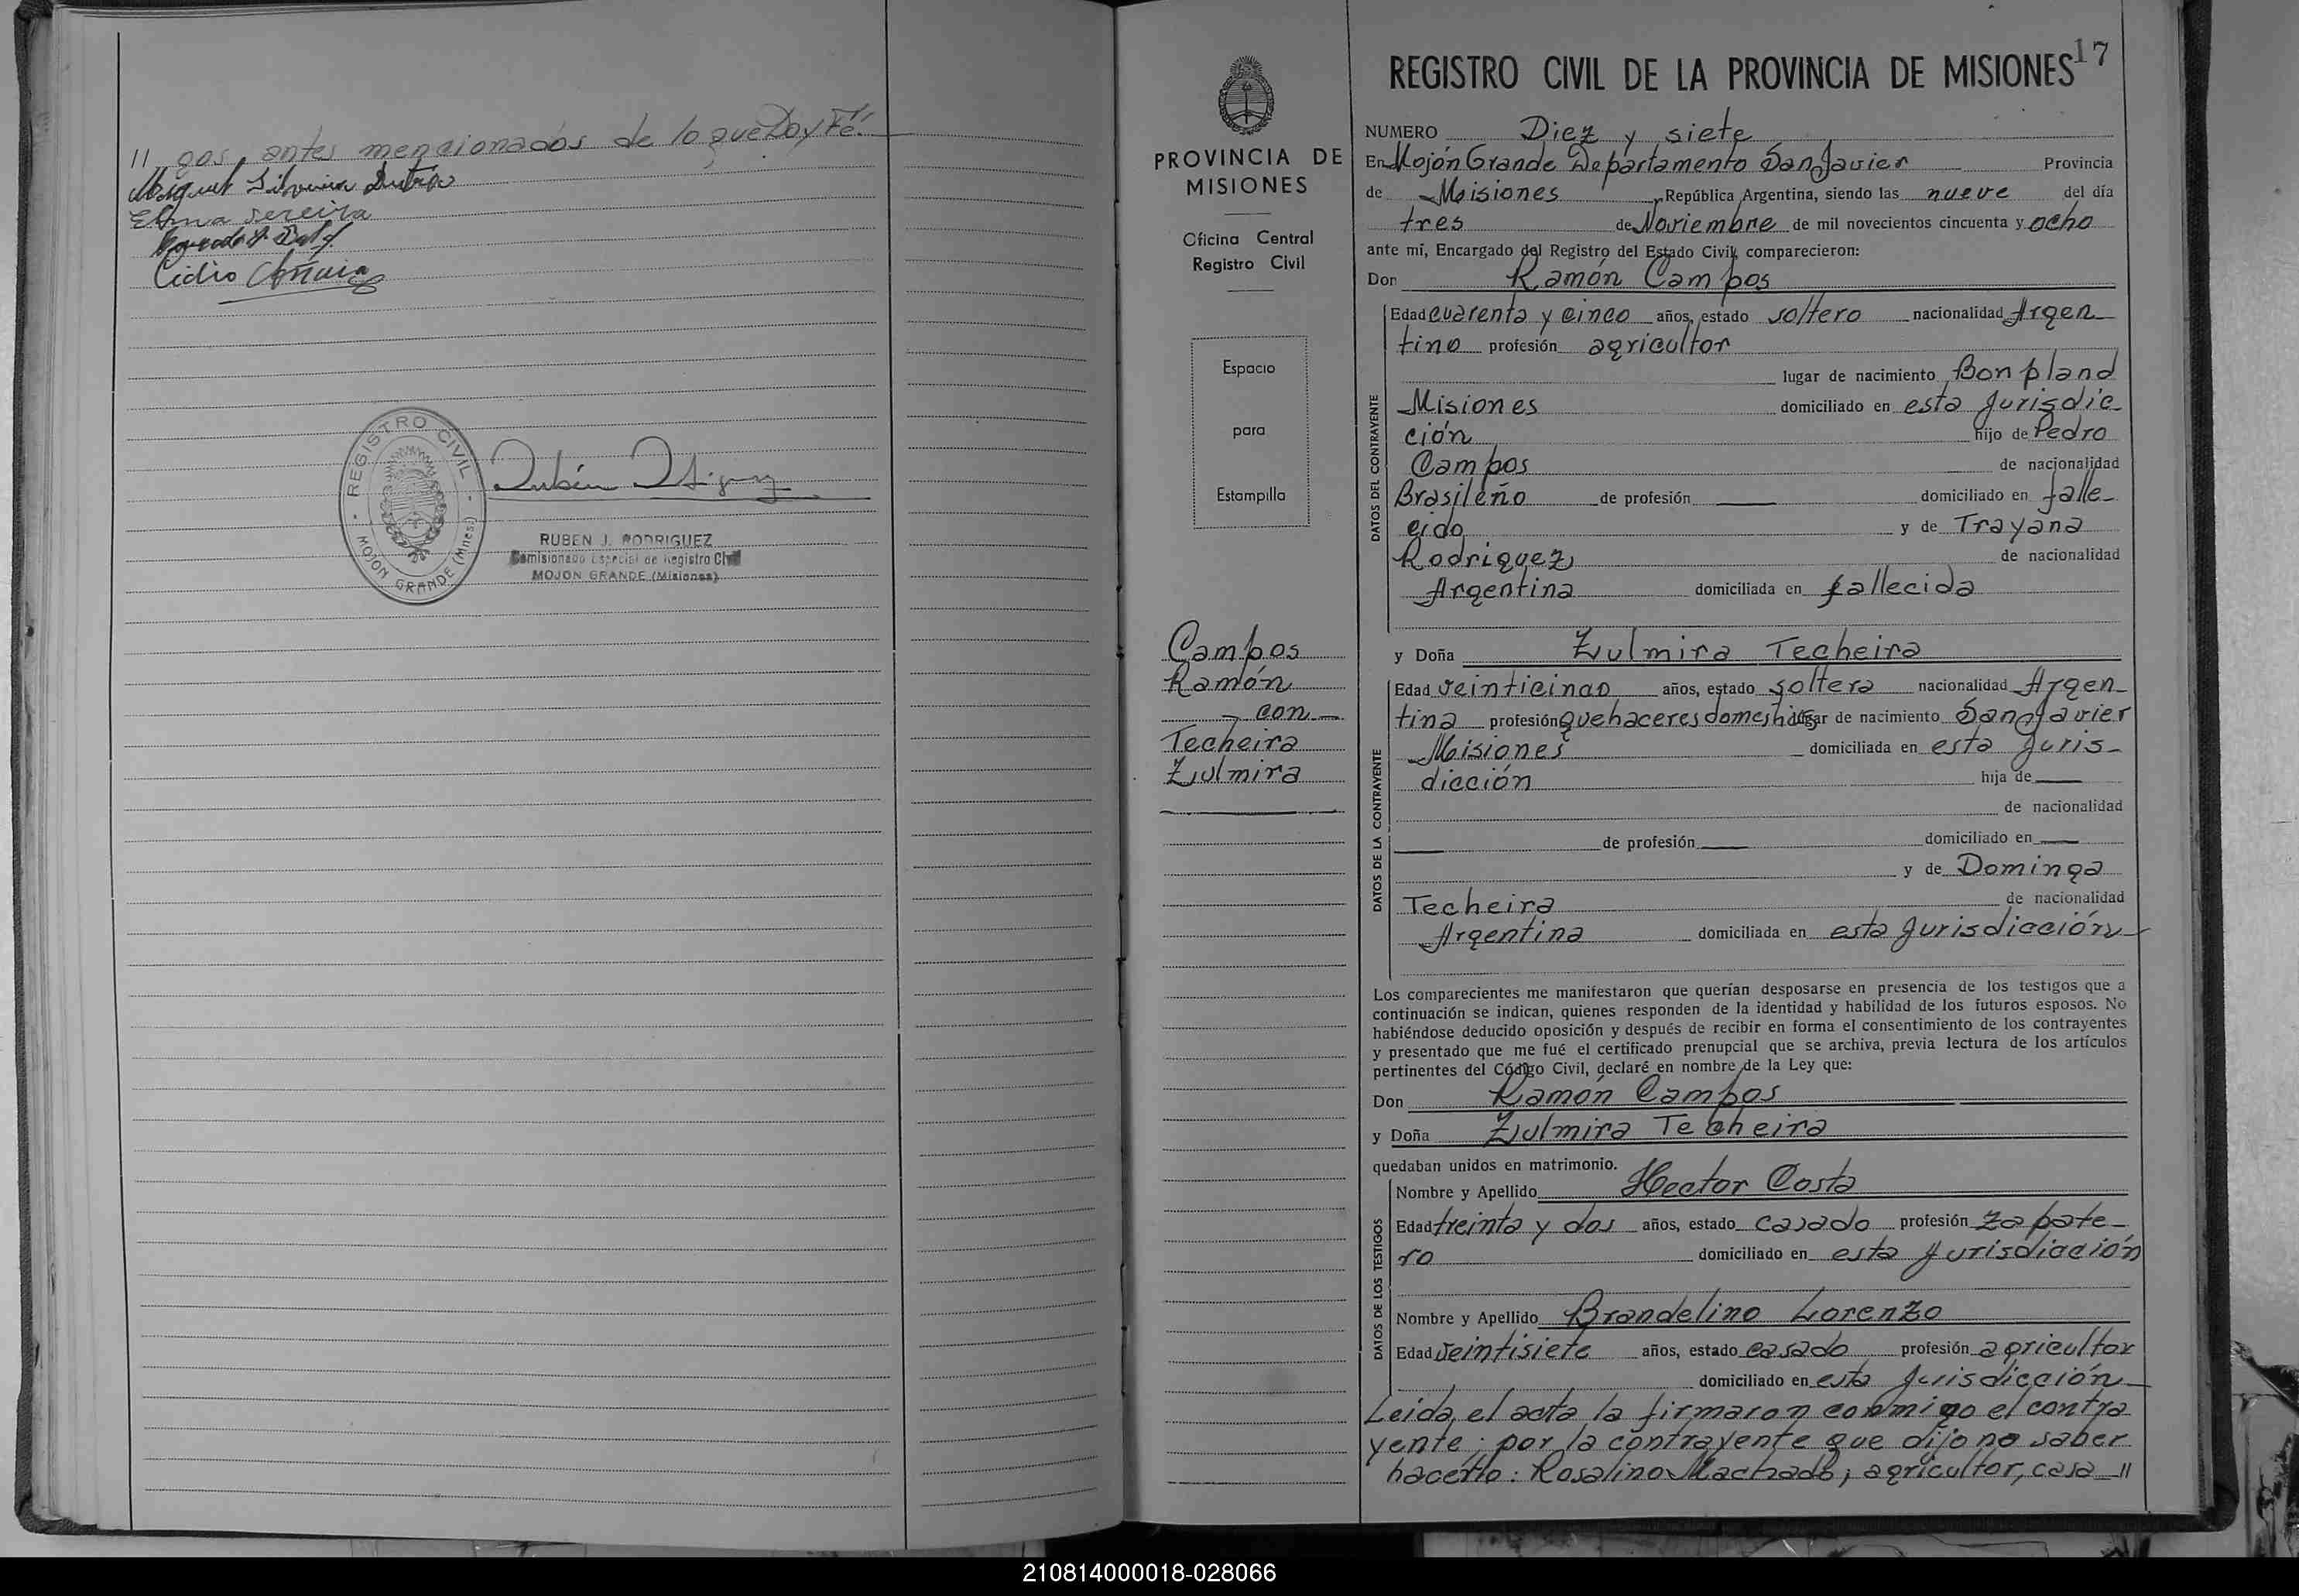 // gos, antes mencionados de lo que Doy Fé.
Miguel Silveira Dutra
Elma Pereira
Cidio
REGISTRO CIVIL
MOJON GRANDE (Mnes.)
Rubén
RUBEN J. RODRIGUEZ
Comisionado Especial de Registro Civil
MOJON GRANDE (Misiones)
PROVINCIA DE
MISIONES
Oficina Central
Registro Civil
Espacio
para
Estampilla
Campos
Ramón
con
Techeira
Zulmira
17
REGISTRO CIVIL DE LA PROVINCIA DE MISIONES
NUMERO Diez y siete
En Mojón Grande Departamento San Javier Provincia
de Misiones, República Argentina, siendo las nueve del día
tres de Noviembre de mil novecientos cincuenta y ocho
ante mí, Encargado del Registro del Estado Civil, comparecieron:
Don Ramón Campos
DATOS DEL CONTRAYENTE
Edad cuarenta y cinco años, estado soltero nacionalidad Argen-
tino profesión agricultor
lugar de nacimiento Bonpland
Misiones domiciliado en esta Jurisdic-
ción hijo de Pedro
Campos de nacionalidad
Brasileño de profesión — domiciliado en falle-
cido y de Trayana
Rodriguez de nacionalidad
Argentina domiciliada en fallecida
y Doña Zulmira Techeira
DATOS DE LA CONTRAYENTE
Edad veinticinco años, estado soltera nacionalidad Argen-
tina profesión quehaceres domesticos lugar de nacimiento San Javier
Misiones domiciliada en esta Juris-
dicción hija de —
de nacionalidad
— de profesión — domiciliado en —
y de Dominga
Techeira de nacionalidad
Argentina domiciliada en esta Jurisdicción
Los comparecientes me manifestaron que querían desposarse en presencia de los testigos que a
continuación se indican, quienes responden de la identidad y habilidad de los futuros esposos. No
habiéndose deducido oposición y después de recibir en forma el consentimiento de los contrayentes
y presentado que me fué el certificado prenupcial que se archiva, previa lectura de los artículos
pertinentes del Código Civil, declaré en nombre de la Ley que:
Don Ramón Campos
y Doña Zulmira Techeira
quedaban unidos en matrimonio.
DATOS DE LOS TESTIGOS
Nombre y Apellido Hector Costa
Edad treinta y dos años, estado casado profesión zapate-
ro domiciliado en esta Jurisdicción
Nombre y Apellido Brandelino Lorenzo
Edad veintisiete años, estado casado profesión agricultor
domiciliado en esta Jurisdicción
Leida, el acta la firmaron conmigo el contra
yente; por la contrayente que dijo no saber
hacerlo: Rosalino Machado, agricultor, casa //
210814000018-028066